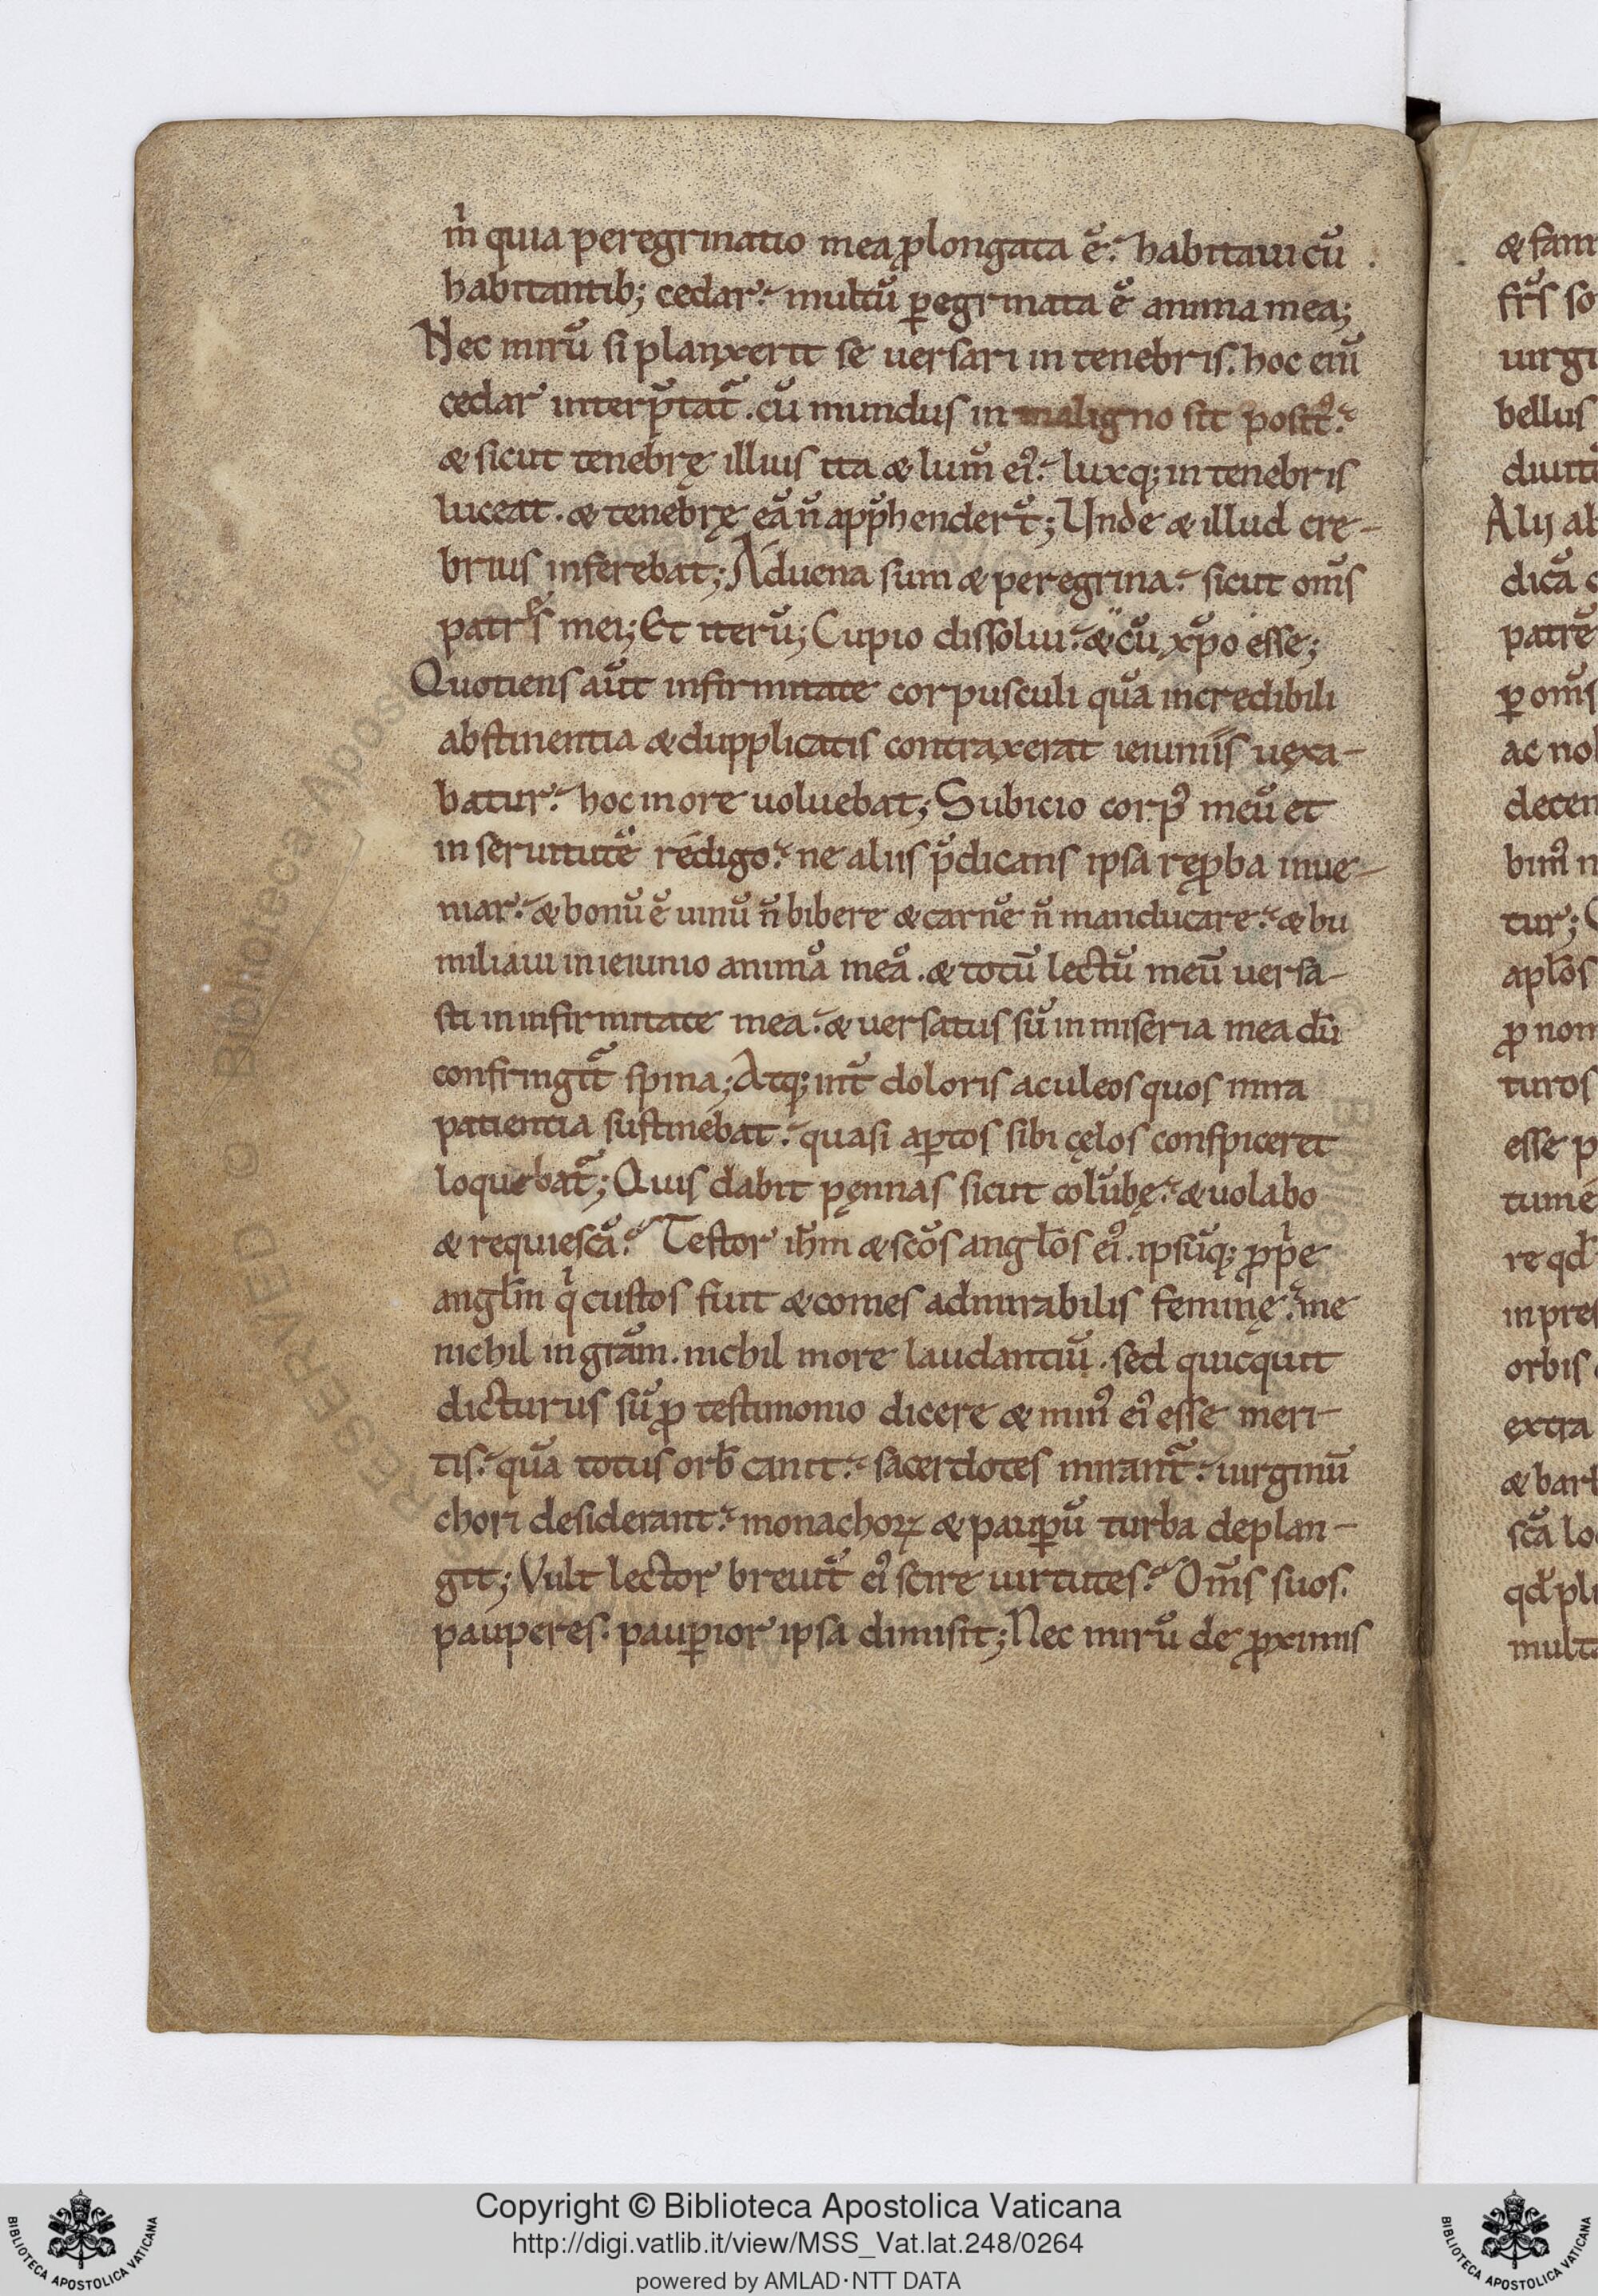 m̊ quia peregrinatio mea ꝓlongata ē. habitaui cū
habitantib; cedar. multū ꝑegrinata ē anima mea;
Nec mirū si planxerit se uersari in tenebris. hoc eni̅
cedar interp̄tat̄. cū mundus in maligno sit posit̄.
& sicut tenebrę illius ita & lum̄ ei᾽. luxq; in tenebris
luceat. & tenebrę eā n̄ app̄hendert̄; Unde & illud cre-
brius inferebat; Aduena sum & peregrina. sicut om̄s
patres mei; Et iterū; Cupio dissolui. & cū xp̄o esse;
Quotiens aūt infirmitate corpusculi quā incredibili
abstinentia & dupplicatis contraxerat ieiuniis uexa-
batur. hoc in ore uoluebat; Subicio corp᾽ meū et
in seruitutē redigo. ne aliis p̄dicans ipsa reꝓba inue-
niar. & bonū ē uinū n̄ bibere & carnē n̄ manducare. & hu
miliaui in ieiunio animā meā. & totū lectū meū uersa-
sti in infirmitate mea. & uersatus sū in miseria mea dū
confringit̄ spina; Atq; int̄ doloris aculeos quos mira
patientia sustinebat. quasi aꝑtos sibi cęlos conspiceret
loquebat̄; Quis dabit pęnnas sicut colūbę. & uolabo
& requiescā. Testor ih̄m & scōs angl̄os ei᾽. ipsūq; ꝓp̊e
angl̄m q̊ custos fuit & comes admirabilis feminę. me
nichil in grām. nichil more laudantiū. sed quicquit
dicturus sū ꝓ testimonio dicere & min᾽ ei᾽ esse meri-
tis. quā totus orb̄ canit. sacerdotes mirant̄. uirginū
chori desiderant. monachoꝝ & pauꝑū turba deplan-
git; Vult lector breuit̄ ei᾽ scire uirtutes. Om̄s suos.
pauperes. pauꝑior ipsa dimisit; Nec mirū de ꝓximis
& fam
fr̄s so
uirgi
bellus
diuiti
Alii ab
dicā
patrē
ꝑ om̄s
ac no
decen
bim᾽ n
tur;
apl̄os
ꝓ nom
turos
esse p
tumē
re qd̄
in pre
orbis
extra
& barb
scā lo
qd̄ plu
multa
Copyright © Biblioteca Apostolica Vaticana
http://digi.vatlib.it/view/MSS_Vat.lat.248/0264
powered by AMLAD·NTT DATA
BIBLIOTECA APOSTOLICA VATICANA
BIBLIOTECA APOSTOLICA VATICANA